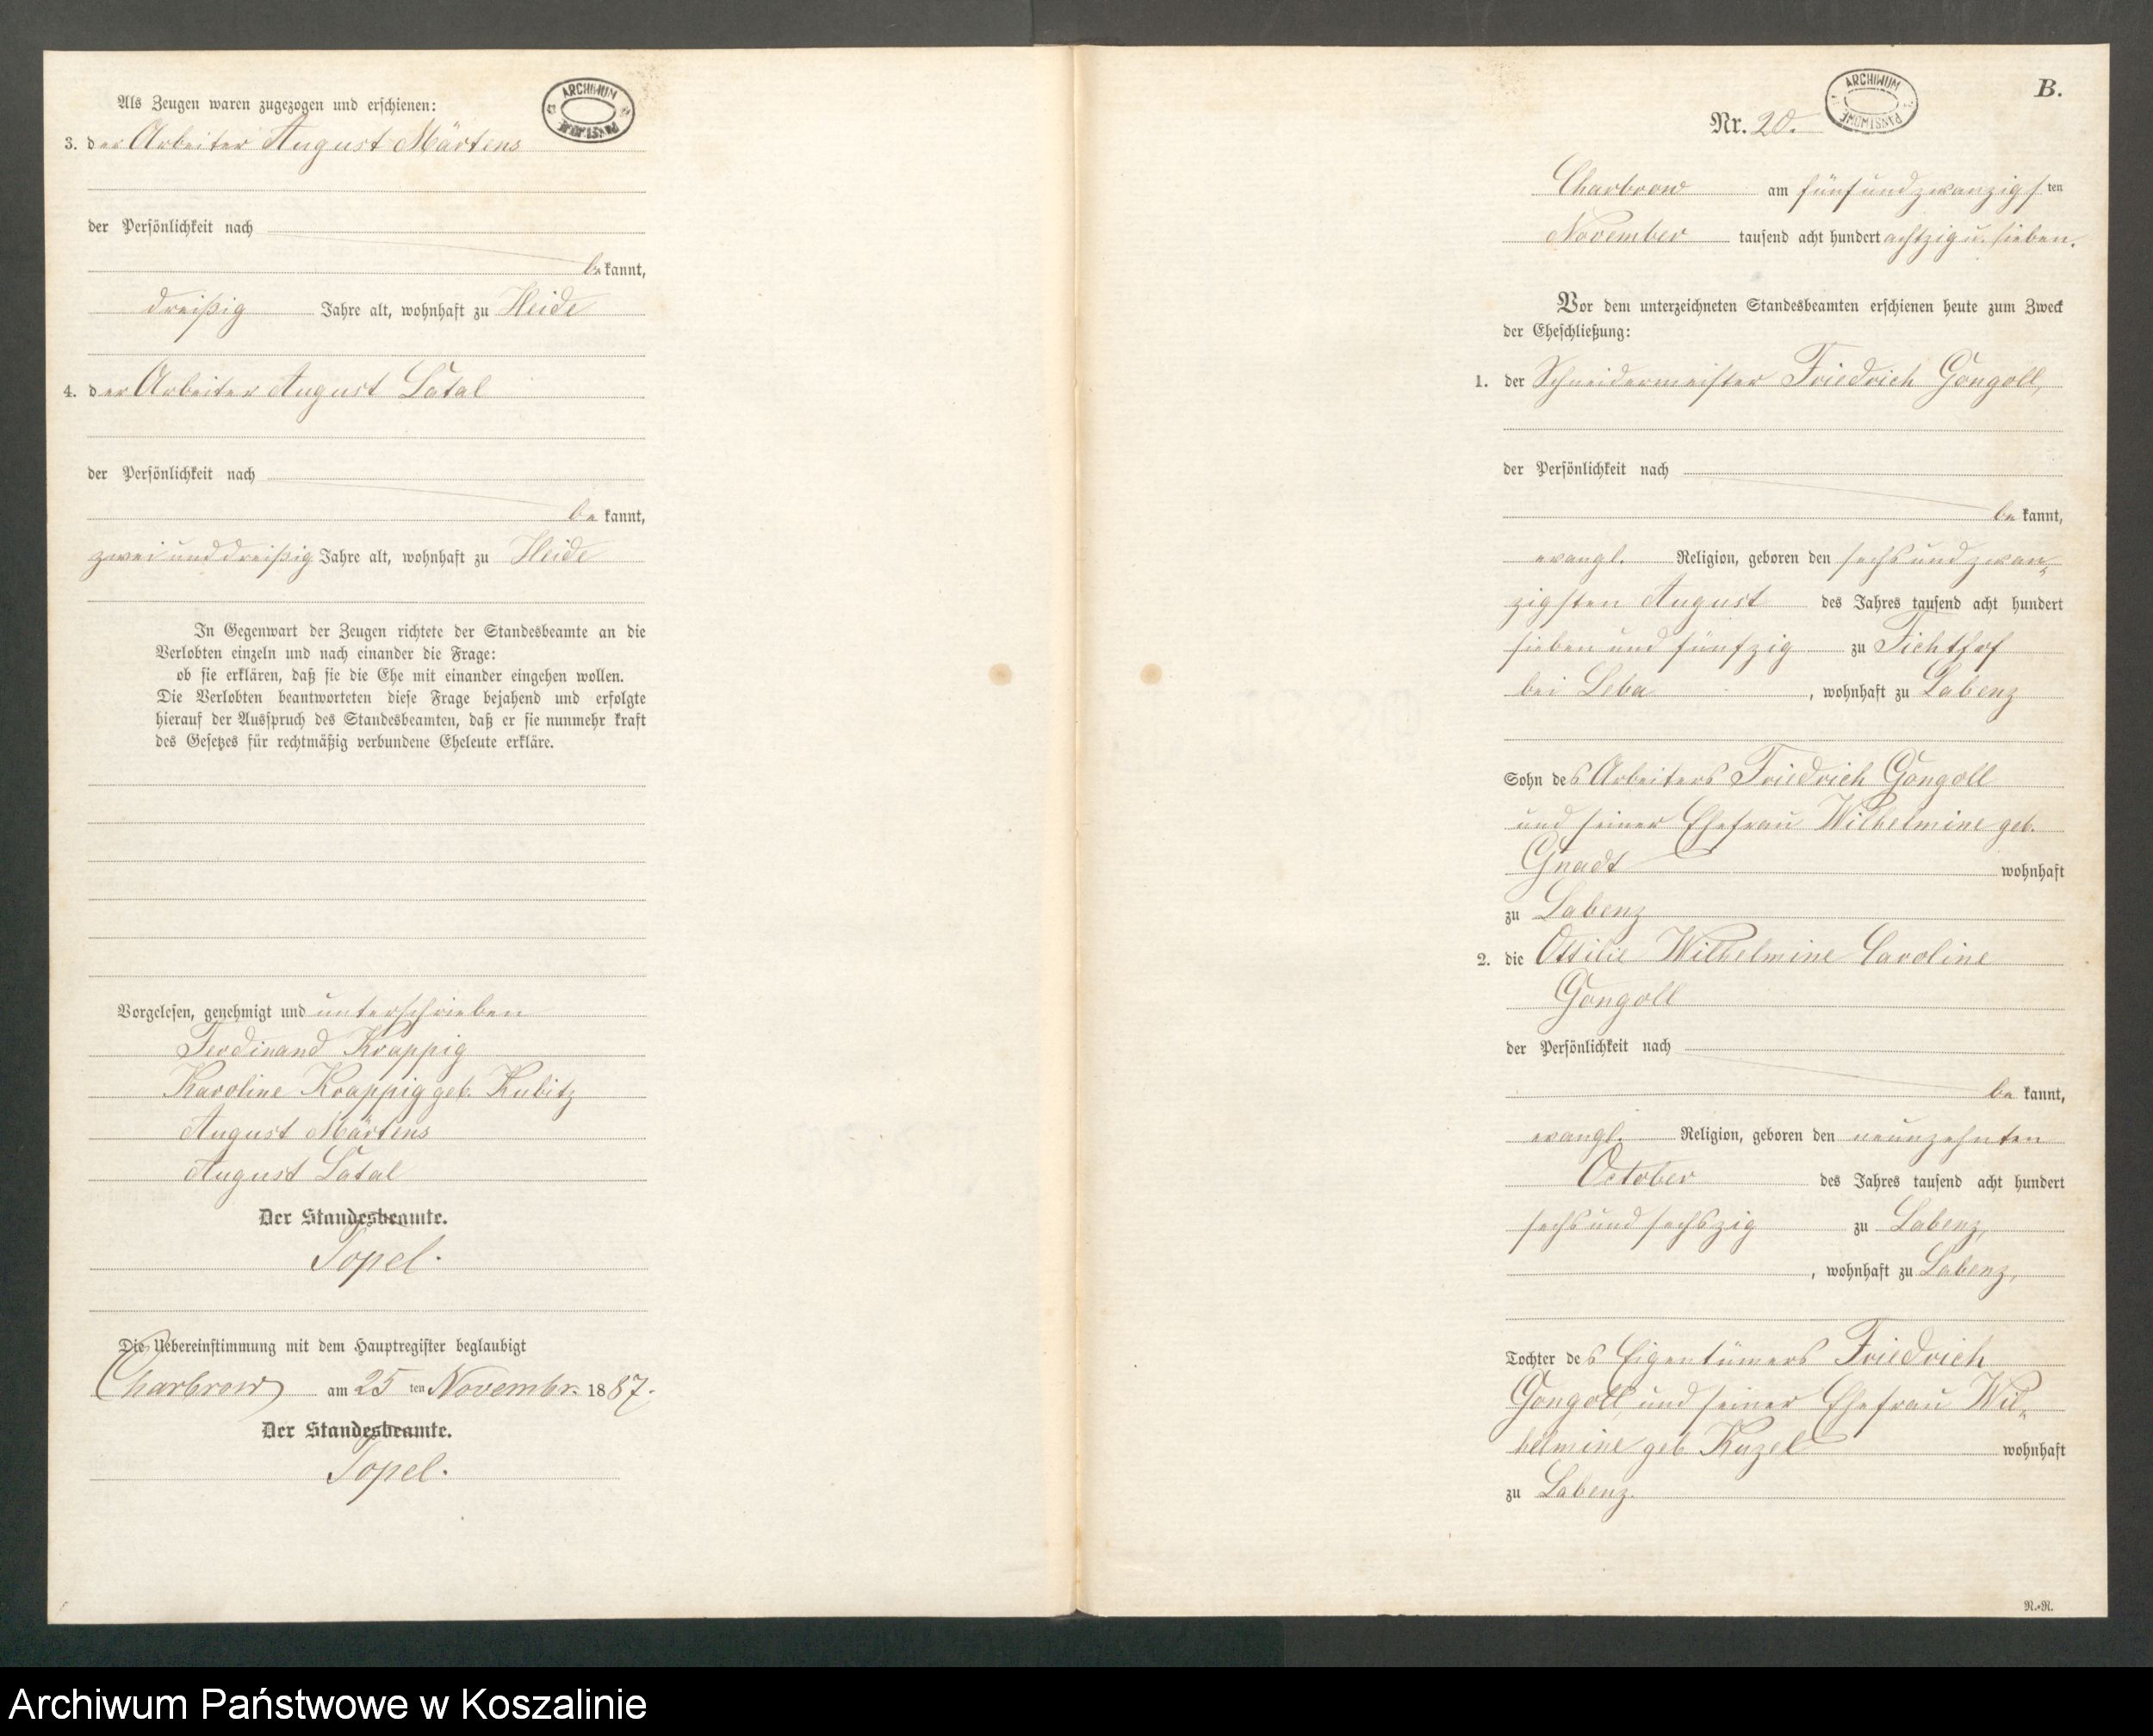 Als Zeugen waren zugezogen und erschienen:
ARCHIWUM
PAŃSTWOWE
3. der Arbeiter August Märtens
der Persönlichkeit nach
bekannt,
dreißig Jahre alt, wohnhaft zu Heide
4. der Arbeiter August Latal
der Persönlichkeit nach
bekannt,
zwei und dreißig Jahre alt, wohnhaft zu Heide
In Gegenwart der Zeugen richtete der Standesbeamte an die
Verlobten einzeln und nach einander die Frage:
ob sie erklären, daß sie die Ehe mit einander eingehen wollen.
Die Verlobten beantworteten diese Frage bejahend und erfolgte
hierauf der Ausspruch des Standesbeamten, daß er sie nunmehr kraft
des Gesetzes für rechtmäßig verbundene Eheleute erkläre.
Vorgelesen, genehmigt und unterschrieben
Ferdinand Krappig
Karoline Krappig geb. Kubitz
August Märtens
August Latal
Der Standesbeamte.
Topel.
Die Uebereinstimmung mit dem Hauptregister beglaubigt
Charbrow am 25 ten Novembr. 1887.
Der Standesbeamte.
Topel.
B.
ARCHIWUM
PAŃSTWOWE
Nr. 20.
Charbrow am fünf und zwanzigsten
November tausend acht hundert achtzig u. sieben.
Vor dem unterzeichneten Standesbeamten erschienen heute zum Zweck
der Eheschließung:
1. der Schneidermeister Friedrich Gongoll,
der Persönlichkeit nach
bekannt,
evangl. Religion, geboren den sechs und zwan-
zigsten August des Jahres tausend acht hundert
sieben und fünfzig zu Fichthof
bei Leba, wohnhaft zu Labenz
Sohn des Arbeiters Friedrich Gongoll
und seiner Ehefrau Wilhelmine geb.
Gnadt wohnhaft
zu Labenz
2. die Ottilie Wilhelmine Caroline
Gongoll
der Persönlichkeit nach
bekannt,
evangl. Religion, geboren den neunzehnten
October des Jahres tausend acht hundert
sechs und sechszig zu Labenz,
, wohnhaft zu Labenz,
Tochter des Eigentümers Friedrich
Gongoll und seiner Ehefrau Wil-
helmine geb Kuzel wohnhaft
zu Labenz.
N.-N.
Archiwum Państwowe w Koszalinie